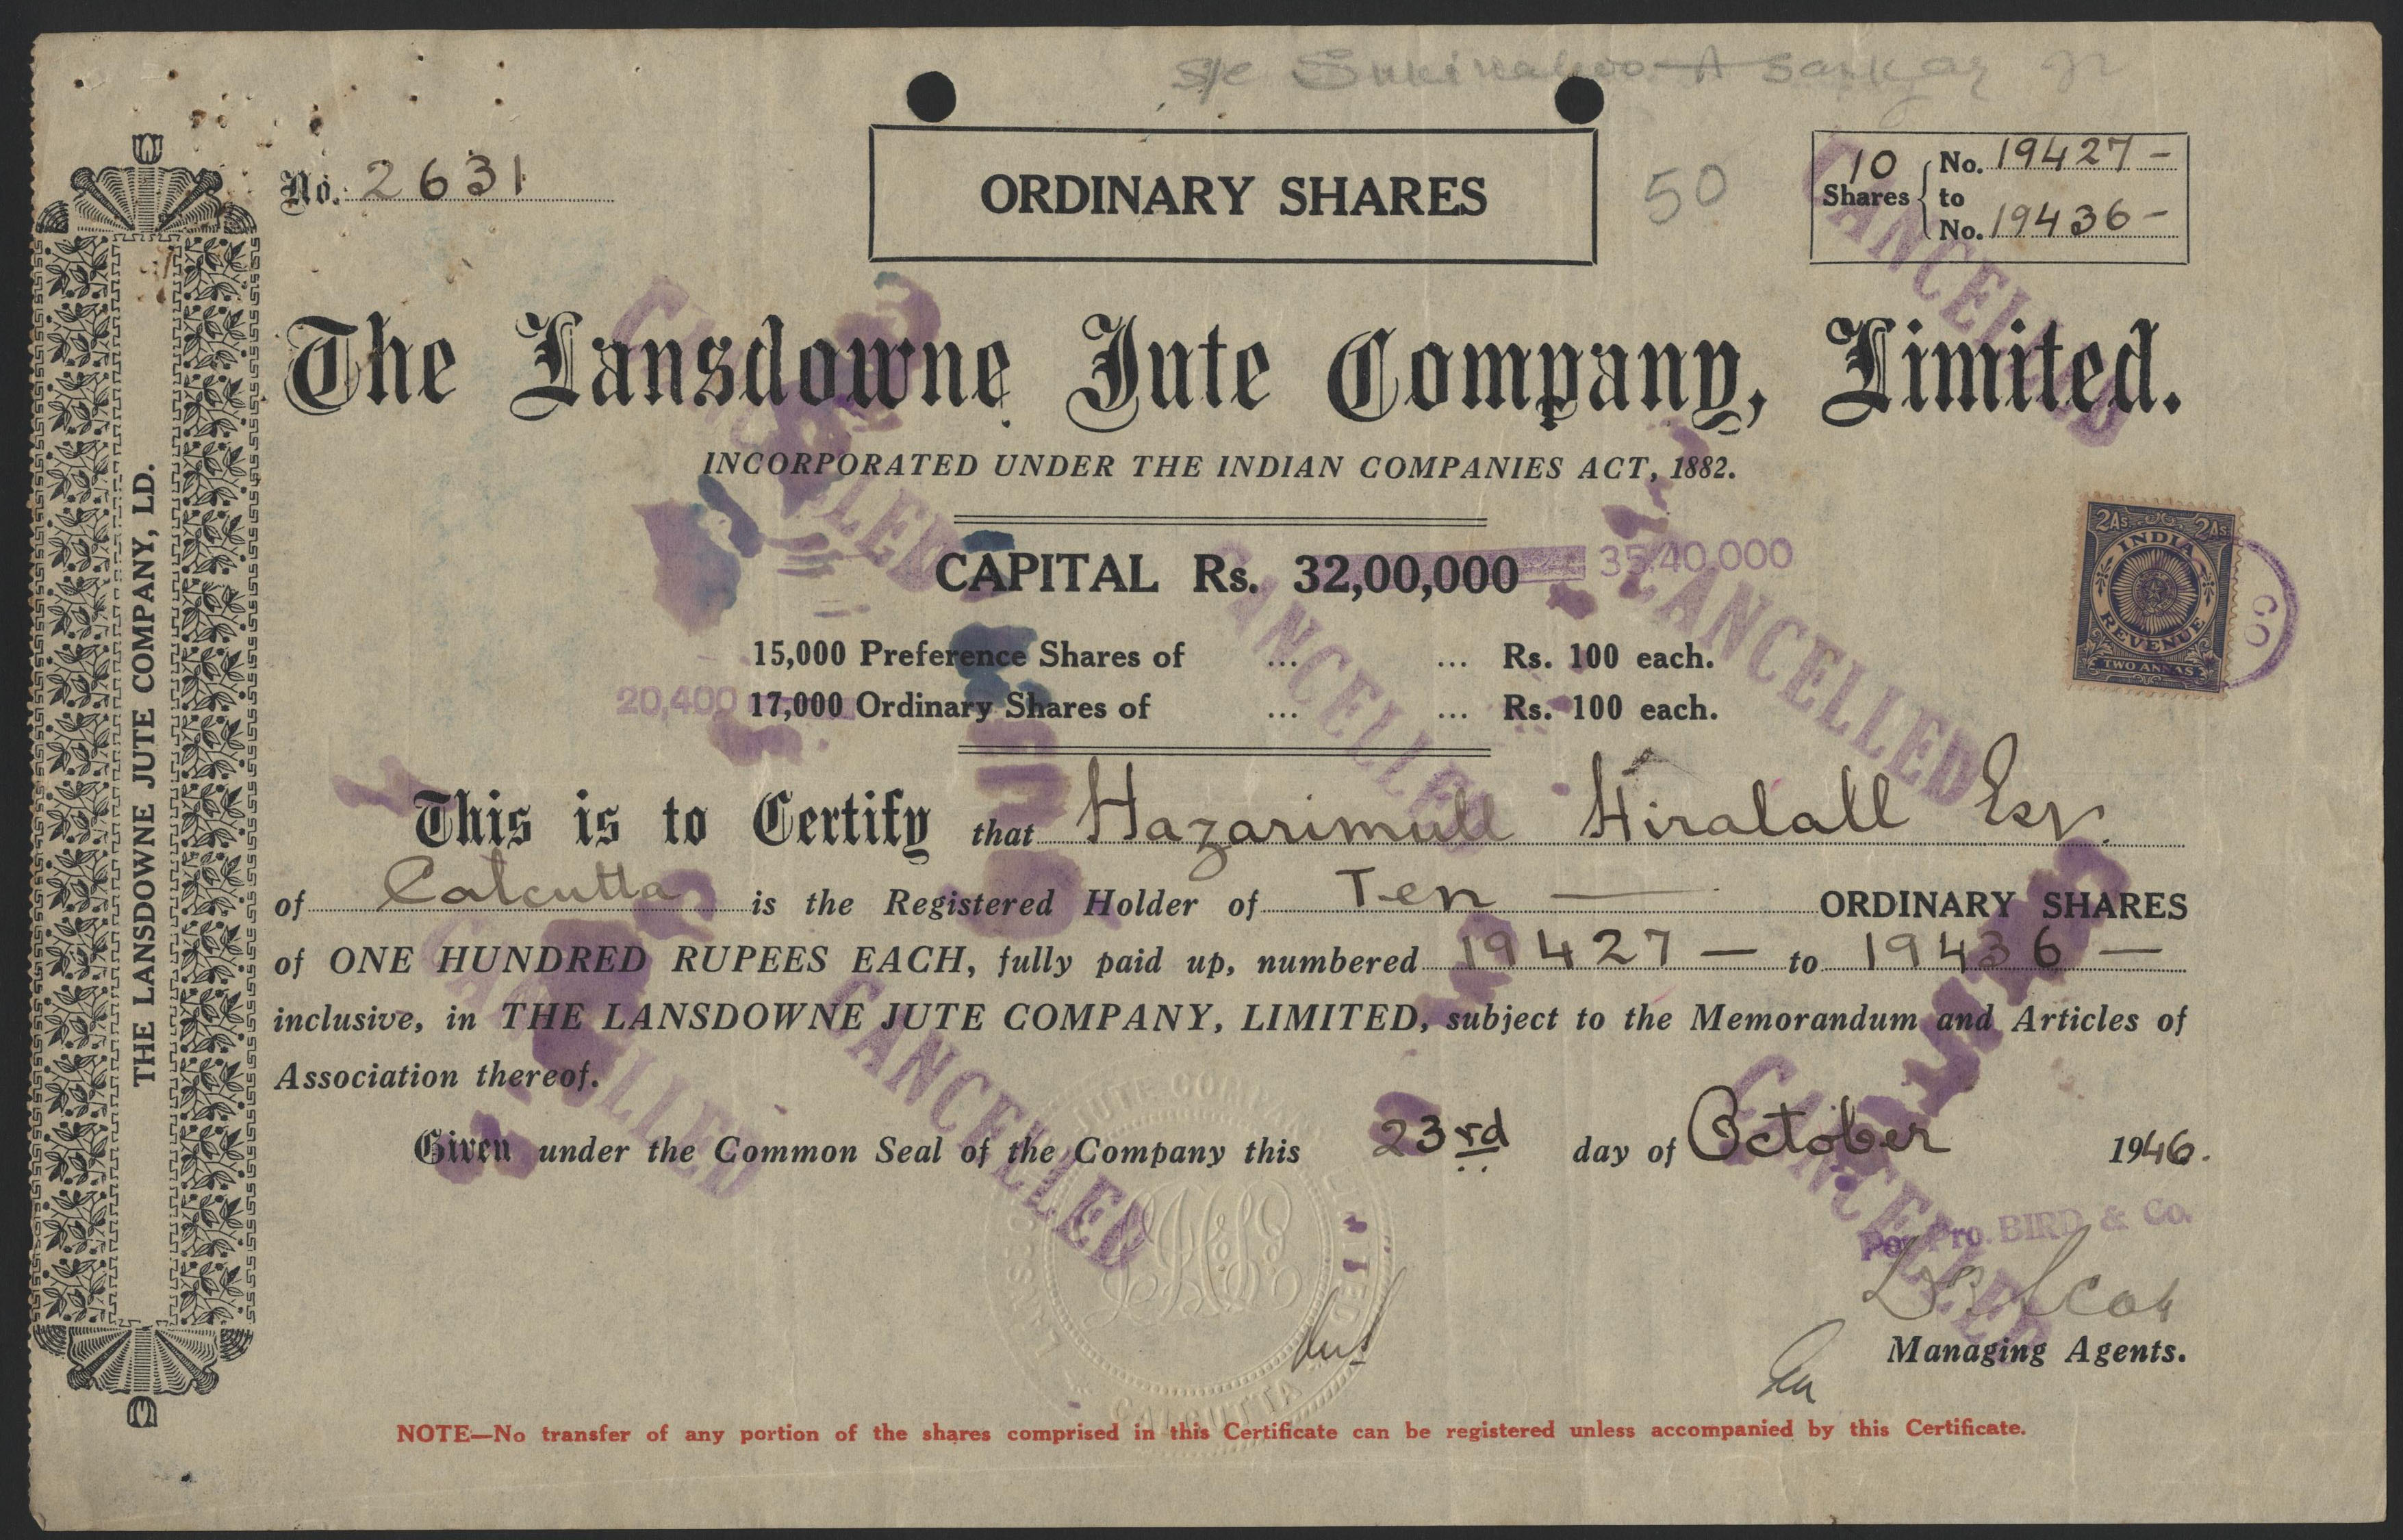 No. 2631
ORDINARY SHARES
50
10 Shares No. 19427 –
to
No. 19436 –
The Lansdowne Jute Company, Limited.
INCORPORATED UNDER THE INDIAN COMPANIES ACT, 1882.
CAPITAL Rs. 32,00,000 35,40,000
15,000 Preference Shares of ... ... Rs. 100 each.
20,400 17,000 Ordinary Shares of ... ... Rs. 100 each.
2As. 2As.
INDIA
REVENUE
TWO ANNAS
CO
This is to Certify that Hazarimull Hiralall Esq.
of Calcutta is the Registered Holder of Ten — ORDINARY SHARES
of ONE HUNDRED RUPEES EACH, fully paid up, numbered 19427 — to 19436 —
inclusive, in THE LANSDOWNE JUTE COMPANY, LIMITED, subject to the Memorandum and Articles of
Association thereof.
Given under the Common Seal of the Company this 23rd day of October 1946.
Per Pro. BIRD & Co.
Managing Agents.
NOTE—No transfer of any portion of the shares comprised in this Certificate can be registered unless accompanied by this Certificate.
THE LANSDOWNE JUTE COMPANY, LD.
CANCELLED
CANCELLED
CANCELLED
CANCELLED
CANCELLED
CANCELLED
CANCELLED
JUTE COMPANY
CALCUTTA